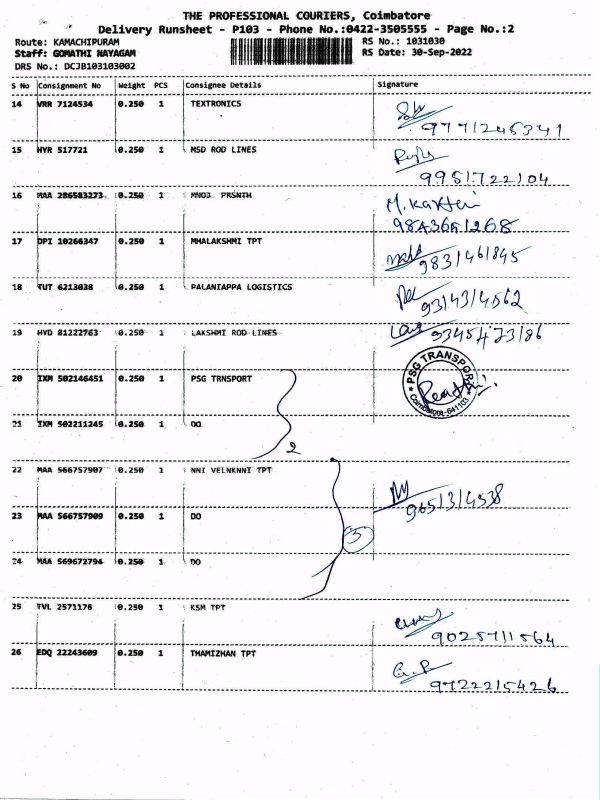 THE PROFESSIONAL COURIERS, Coimbatore
Delivery Runsheet - P103 - Phone No.:0422-3505555 - Page No.:2
Route: KAMACHIPURAM RS No.: 1031030
Staff: GOMATHI NAYAGAM RS Date: 30-Sep-2022
DRS No.: DCJB103103002
S No Consignment No Weight PCS Consignee Details Signature
14 VRR 7124534 0.250 1 TEXTRONICS
9771245341
15 HYR 517721 0.250 1 MSD ROD LINES
9951722104
16 MAA 286583273 0.250 1 MNOJ PRSNTH M. Karthi
17 DPI 10266347 0.250 1 MHALAKSHMI TPT
9831461845
18 TUT 6213038 0.250 1 PALANIAPPA LOGISTICS
9314314562
19 HYD 81222763 0.250 1 LAKSHMI ROD LINES
9345473186
20 IXM 502146451 0.250 1 PSG TRNSPORT
PSG TRANSPORT
Coimbatore-641103
21 IXM 502211245 0.250 1 DO
2
22 MAA 566757907 0.250 1 NNI VELNKNNI TPT
9651314538
23 MAA 566757909 0.250 1 DO
3
24 MAA 569672794 0.250 1 DO
25 TVL 2571176 0.250 1 KSM TPT
9025711564
26 EDQ 22243609 0.250 1 THAMIZHAN TPT G.P
9722215426